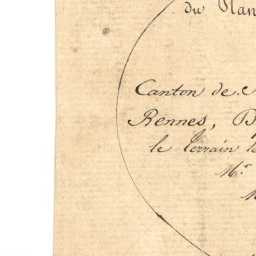 du Plan
Canton de
Rennes, B
le terrain
Mr.